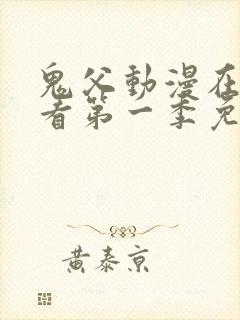 鬼父動漫在
看第一季免
黃泰京